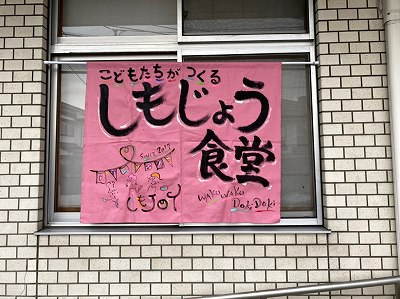 こどもたちがつくる
しもじょう
食堂
SINCE 2017
しもJOY
WAKU WAKU
Doki Doki